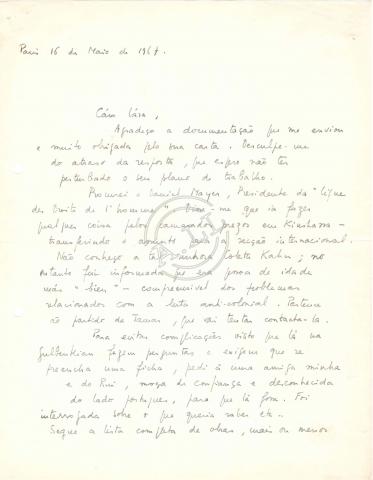 Paris 16 de Maio de 1967.
Caro Lára,
Agradeço a documentação que me enviou
e muito obrigada pela sua carta. Desculpe-me
do atraso da resposta, que espero não ter
perturbado o seu plano de trabalho.
Procurei o Daniel Mayer, Presidente da "Ligue
des Droits de l'homme" Disse-me que ia fazer
qualquer coisa pelos camaradas presos em Kinshasa -
transferindo o assunto para a secção internacional
Não conheço a tal senhora Kahn; no
entanto fui informada que era pessoa de idade
mas "bien" - compreensível dos problemas
relacionados com a luta anti-colonial. Pertence
ao partido de que vai tentar contacta-la.
Para evitar complicações visto que lá na
Gulbenkian fazem perguntas e exigem que se
preencha uma ficha, pedi à uma amiga minha
e do Rui, moça de confiança e desconhecida
do lado português, para que lá fosse. Foi
interrogada sobre o que queria saber etc.
Segue a lista completa de obras, mais ou menos